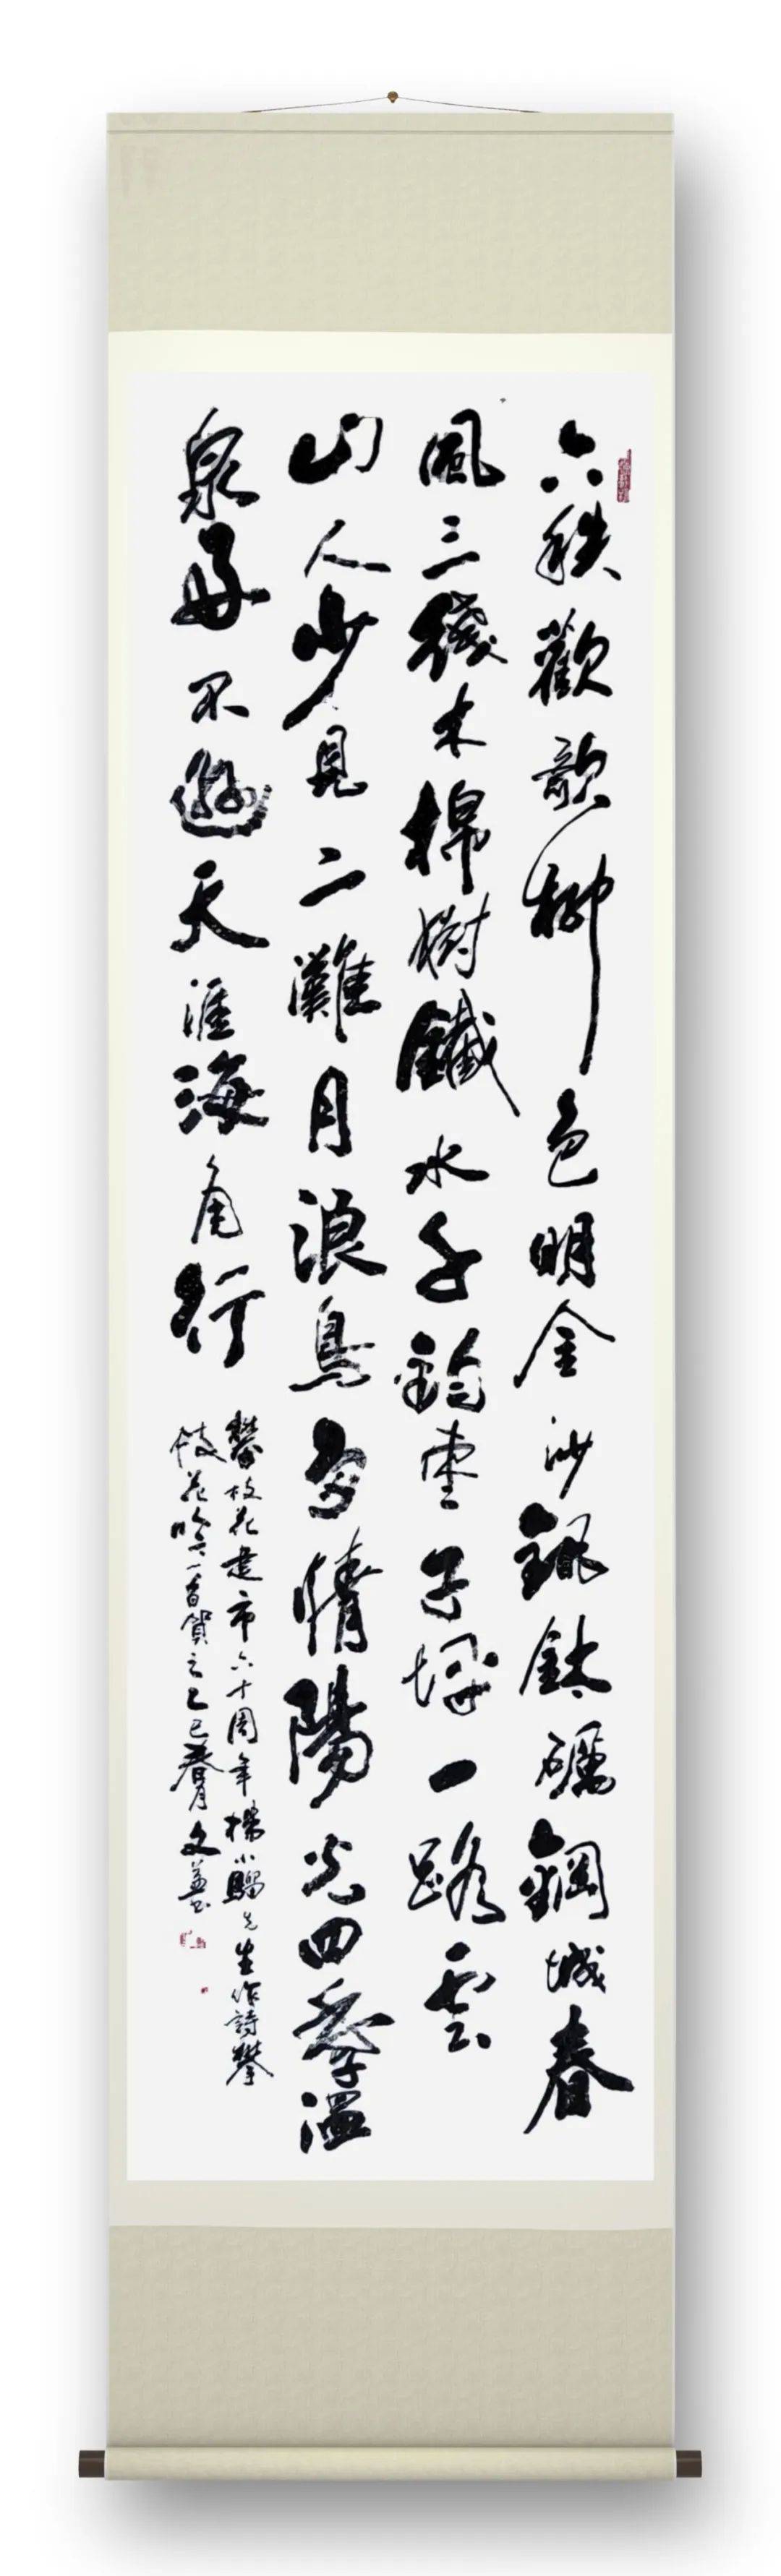 六秩歡歌柳色明金沙釩鈦礪鋼城春
風三綫木棉樹鐵水千鈞棗子坪一路雲
山人少見二灘月浪鳥多情陽光四季溫
泉好不遊天涯海角行
攀枝花建市六十周年楊小先生作詩攀
枝花吟一首賀之乙巳春月文書